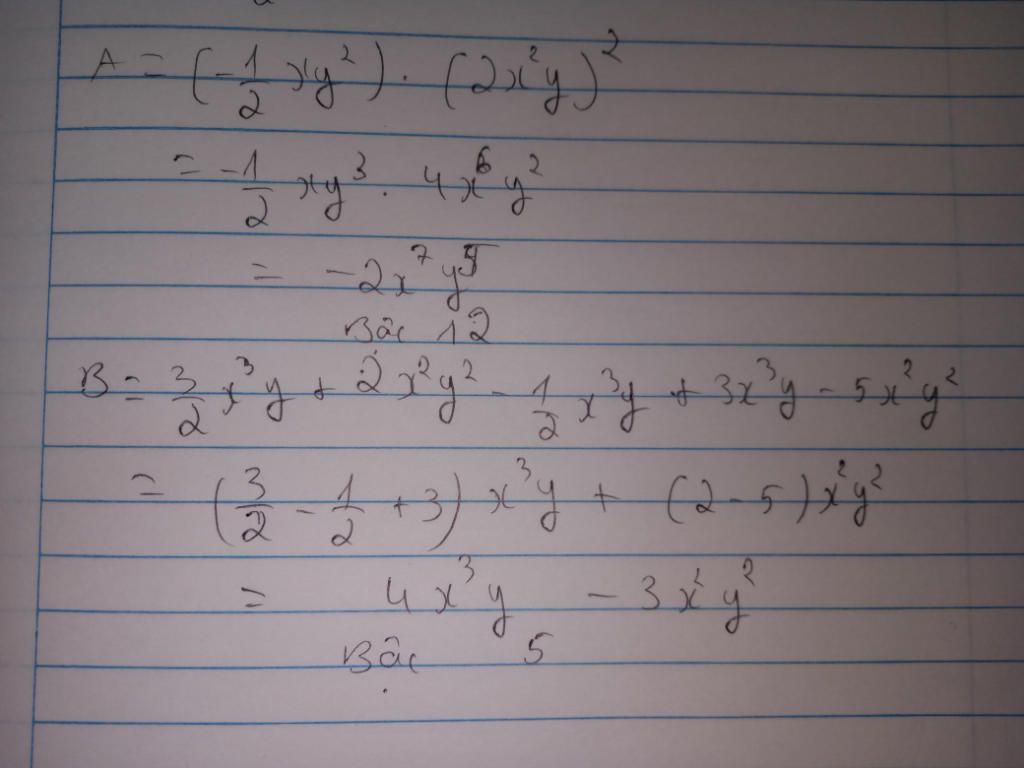 A = (-1/2 xy²) · (2x²y)²
= -1/2 xy³ · 4x⁶y²
= -2x⁷y⁵
Bậc 12
B = 3/2 x³y + 2x²y² - 1/2 x³y + 3x³y - 5x²y²
= (3/2 - 1/2 + 3) x³y + (2 - 5) x²y²
= 4x³y - 3x²y²
Bậc 5